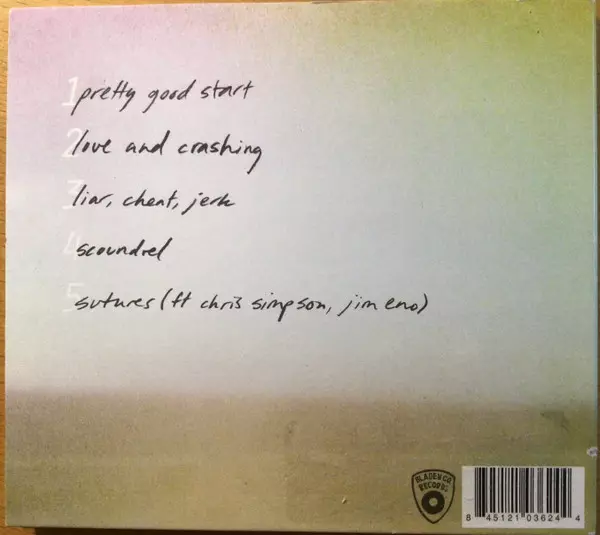 1 pretty good start
2 love and crashing
3 liar, cheat, jerk
4 scoundrel
5 sutures (ft chris simpson, jim eno)
BLADEN CO.
RECORDS
8 45121 03624 4